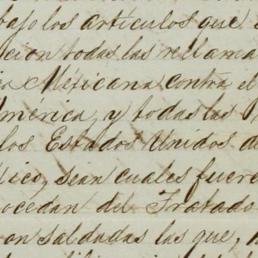 bajo los artículos que
cion todas las reclama
Mexicana contra el
mérica, y todas las
los Estados Unidos de
ico, sean cuales fuere
ocedan del Tratado
on saldadas las que,